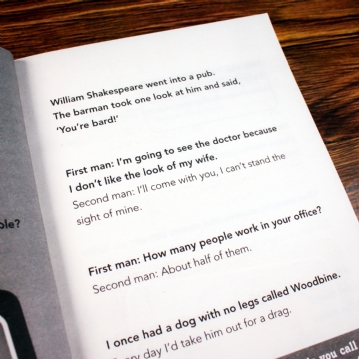 William Shakespeare went into a pub.
The barman took one look at him and said,
'You're bard!'
First man: I'm going to see the doctor because
I don't like the look of my wife.
Second man: I'll come with you, I can't stand the
sight of mine.
First man: How many people work in your office?
Second man: About half of them.
I once had a dog with no legs called Woodbine.
day I'd take him out for a drag.
you call